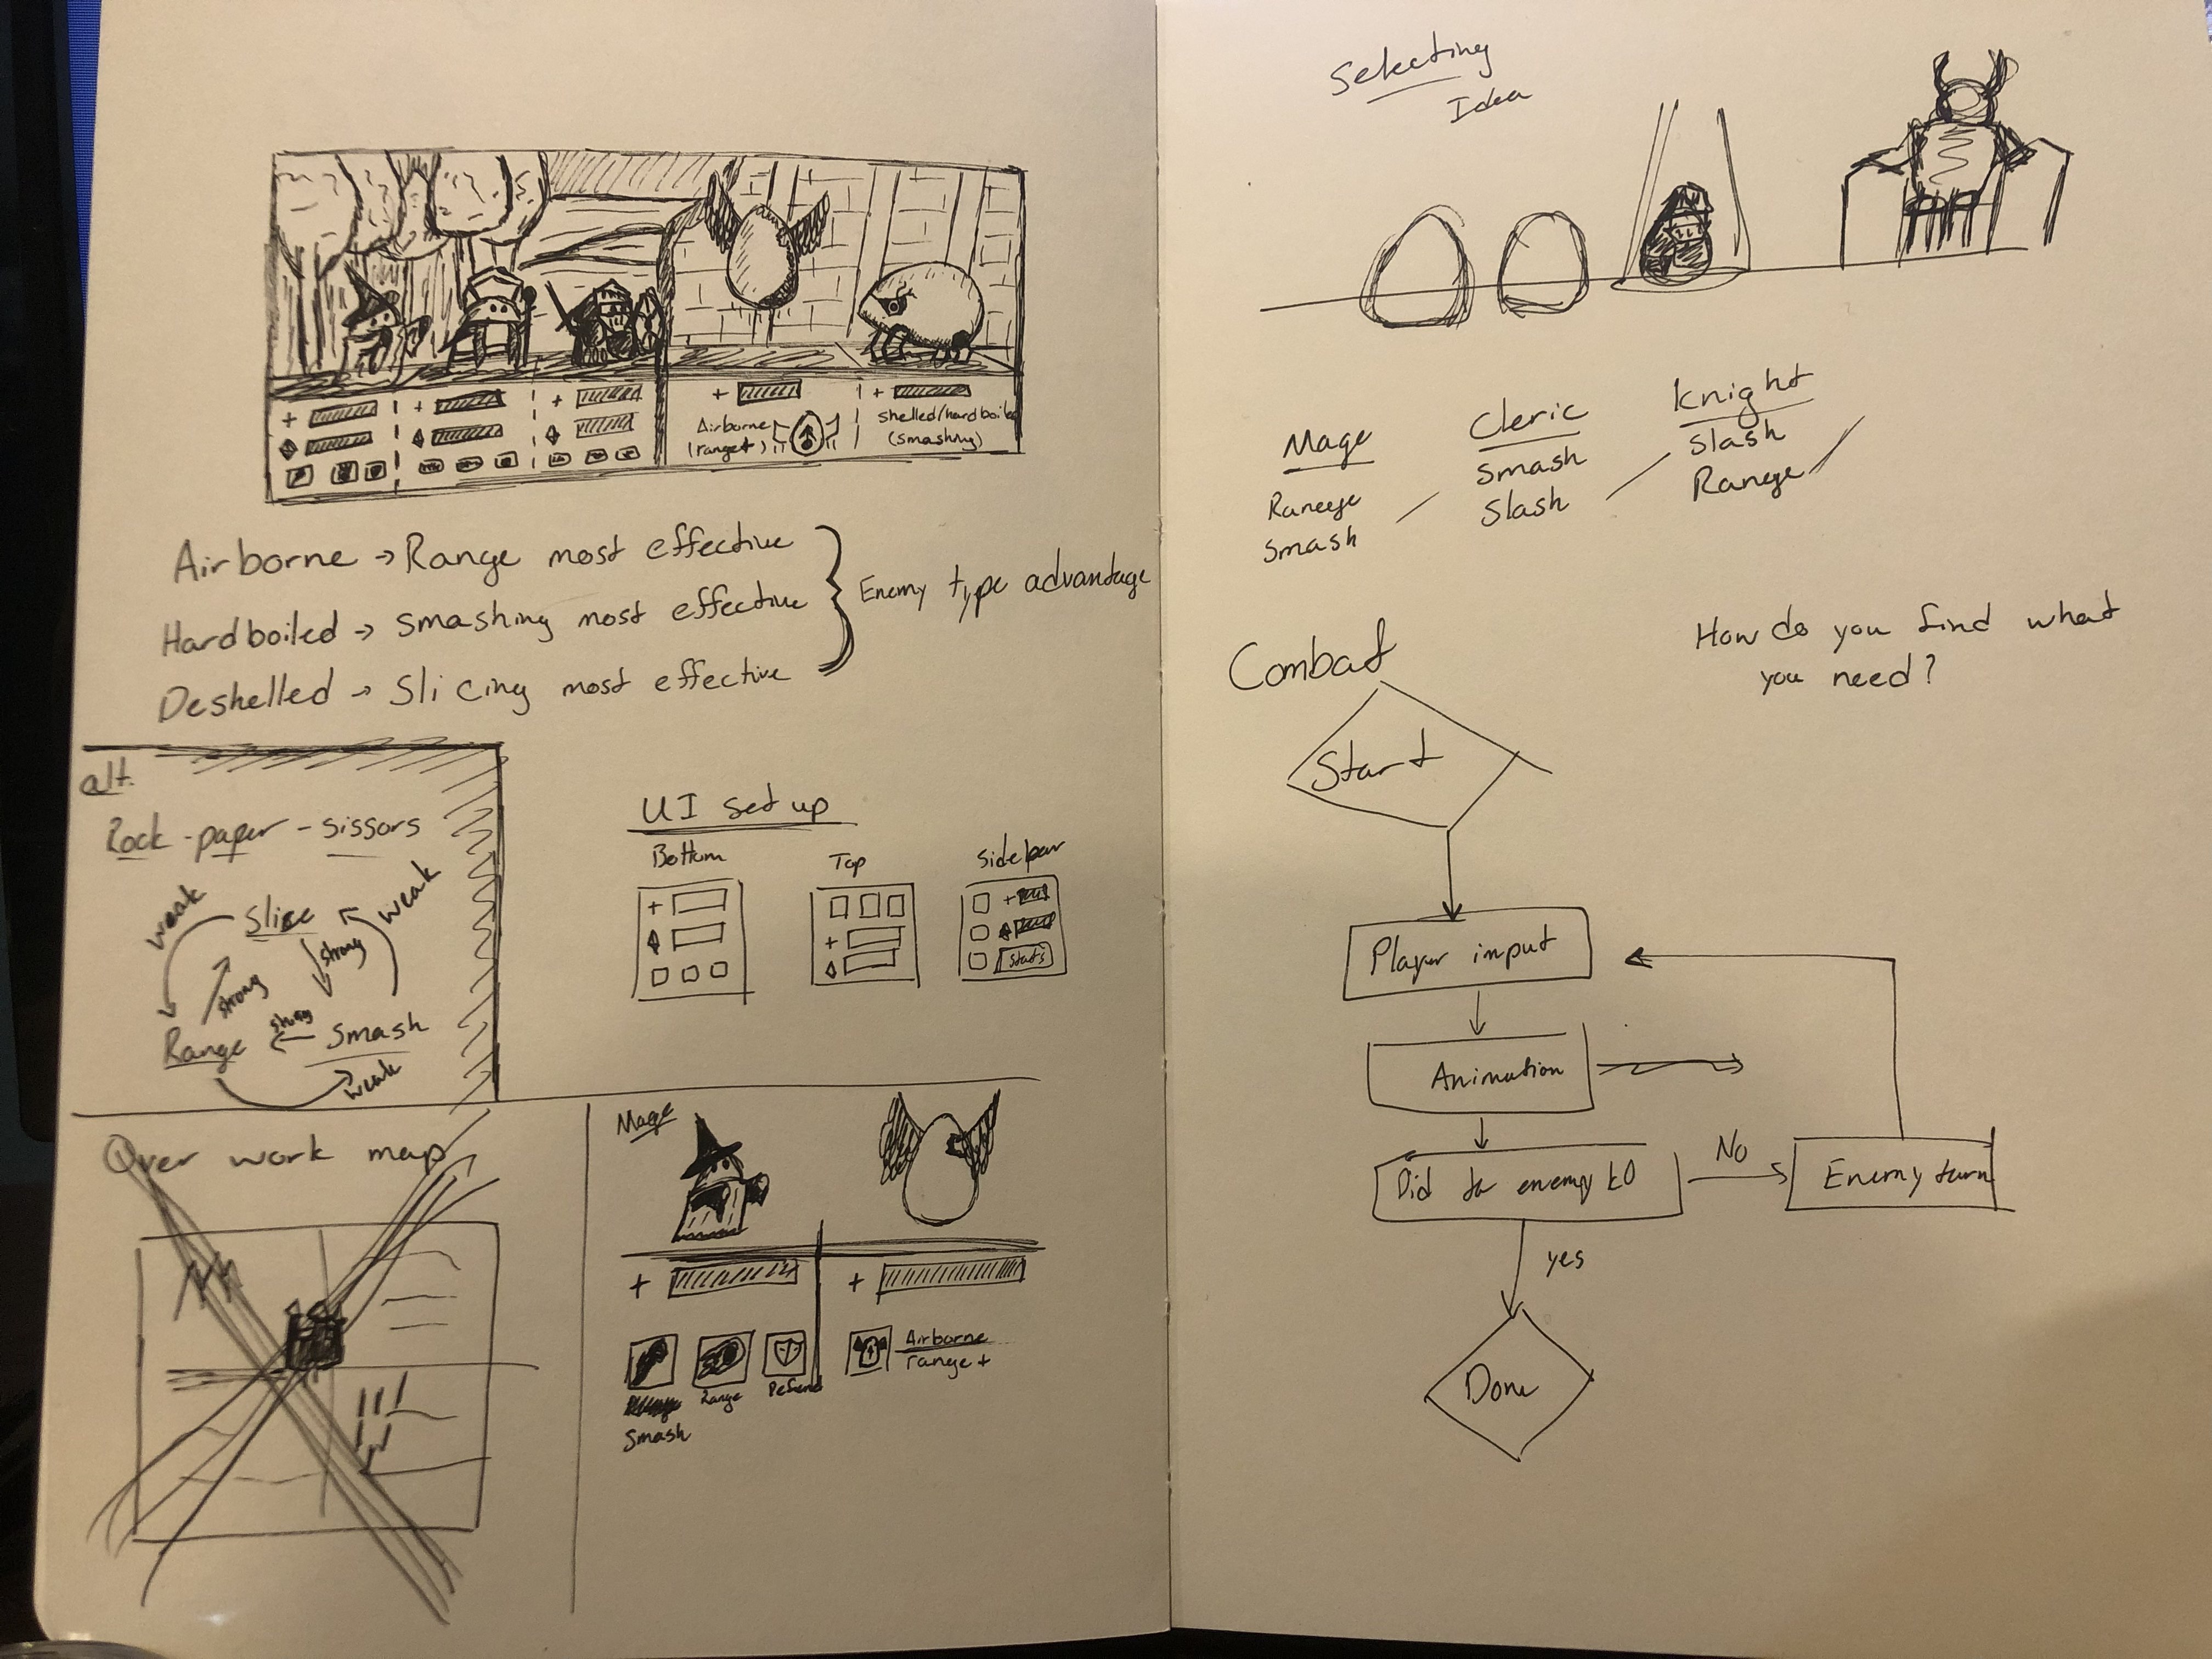 +
+
+
+
+
Airborne
(range+)
Shelled/hardboiled
(smashing)
Airborne → Range most effective
Hardboiled → Smashing most effective
Deshelled → Slicing most effective
Enemy type advantage
alt.
Rock-paper-sissors
weak
Slice
weak
strong
strong
Range
strong
Smash
weak
UI set up
Bottom
Top
Sidebar
+
+
+
Stats
Over work map
Mage
+
+
Smash
Range
Defend
Airborne
range+
Selecting
Idea
Mage
Ranege
Smash
Cleric
Smash
Slash
Knight
Slash
Range
How do you find what
you need?
Combat
Start
Player input
Animation
Did enemy
No
Enemy turn
yes
Done